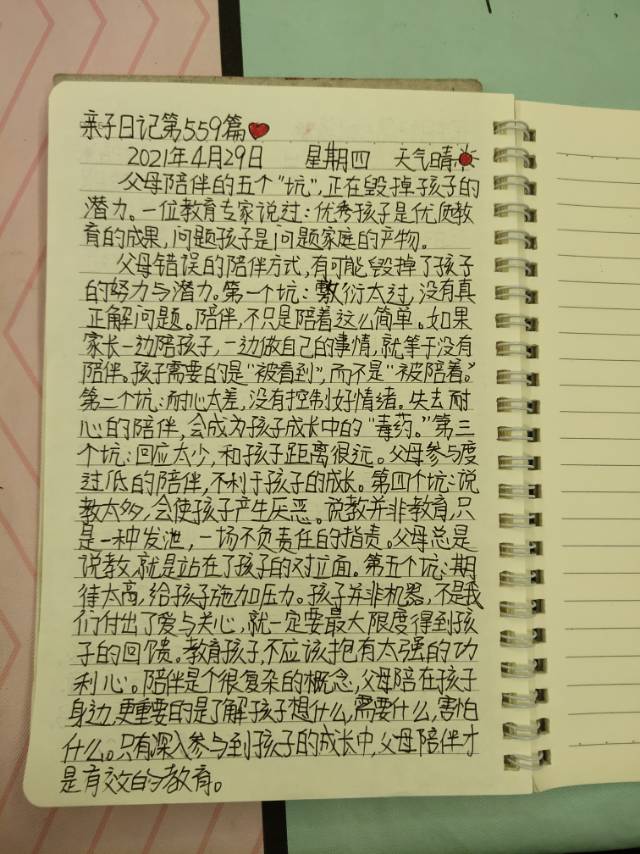 亲子日记第559篇
2021年4月29日 星期四 天气晴
父母陪伴的五个“坑”,正在毁掉孩子的
潜力。一位教育专家说过:优秀孩子是优质教
育的成果,问题孩子是问题家庭的产物。
父母错误的陪伴方式,有可能毁掉了孩子
的努力与潜力。第一个坑:敷衍太过,没有真
正解问题。陪伴,不只是陪着这么简单。如果
家长一边陪孩子,一边做自己的事情,就等于没有
陪伴。孩子需要的是“被看到”,而不是“被陪着。”
第二个坑:耐心太差,没有控制好情绪。失去耐
心的陪伴,会成为孩子成长中的“毒药。”第三
个坑:回应太少,和孩子距离很远。父母参与度
过低的陪伴,不利于孩子的成长。第四个坑:说
教太多,会使孩子产生厌恶。说教并非教育,只
是一种发泄,一场不负责任的指责。父母总是
说教,就是站在了孩子的对立面。第五个坑:期
待太高,给孩子施加压力。孩子并非机器,不是我
们付出了爱与关心,就一定要最大限度得到孩
子的回馈。教育孩子,不应该抱有太强的功
利心。陪伴是个很复杂的概念,父母陪在孩子
身边,更重要的是了解孩子想什么,需要什么,害怕
什么。只有深入参与到孩子的成长中,父母陪伴才
是有效的教育。